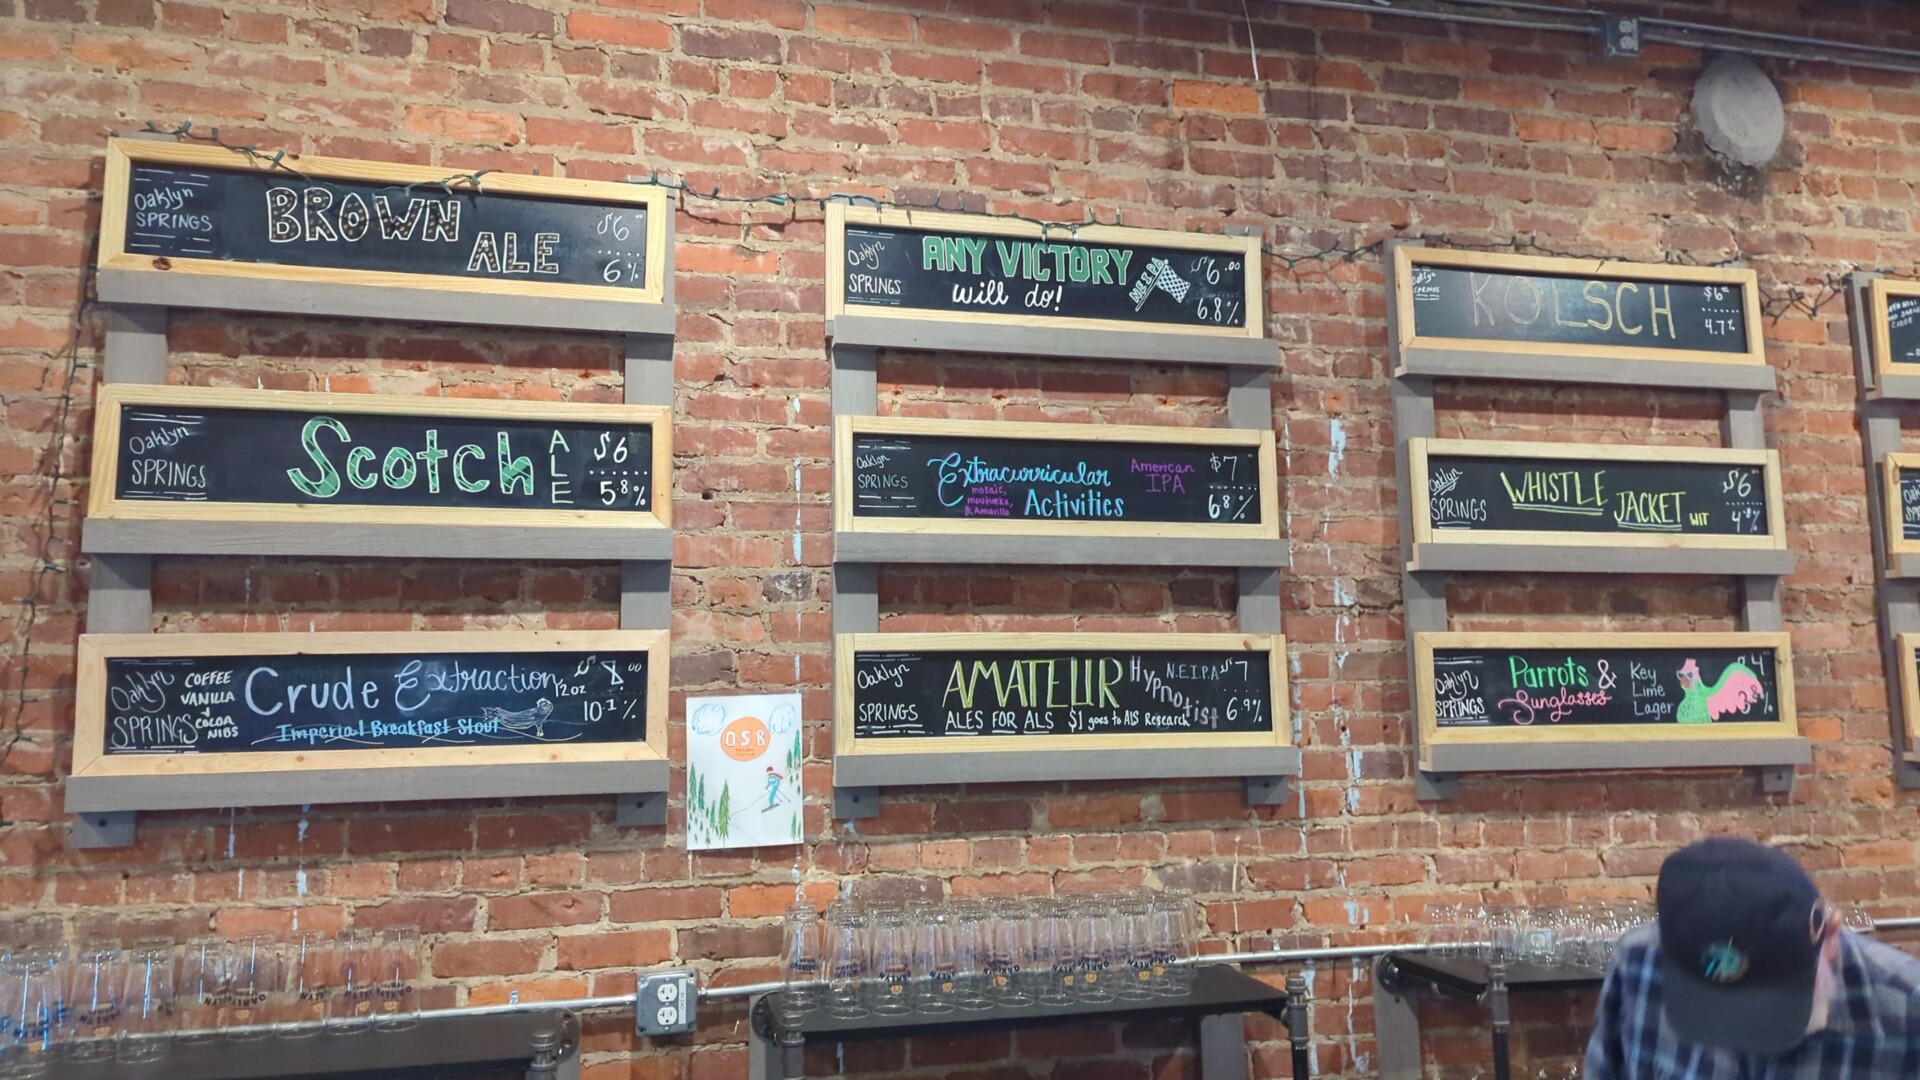 Oaklyn
SPRINGS
BROWN
ALE
$6
6%
Oaklyn
SPRINGS
Scotch
ALE
$6
5.8%
Oaklyn
SPRINGS
COFFEE
VANILLA
+
COCOA
NIBS
Crude Extraction
Imperial Breakfast Stout
12oz
$8.00
10.1%
OSB
Oaklyn
SPRINGS
ANY VICTORY
will do!
NEIPA
$6.00
6.8%
Oaklyn
SPRINGS
Extracurricular
Activities
mosaic,
moutueka,
& Amarillo
American
IPA
$7
6.8%
Oaklyn
SPRINGS
AMATEUR
Hypnotist
N.E.I.P.A
ALES FOR ALS $1 goes to ALS Research
$7
6.9%
Oaklyn
SPRINGS
KOLSCH
$6
4.7%
Oaklyn
SPRINGS
WHISTLE
JACKET WIT
$6
Oaklyn
SPRINGS
Parrots &
Sunglasses
Key
Lime
Lager